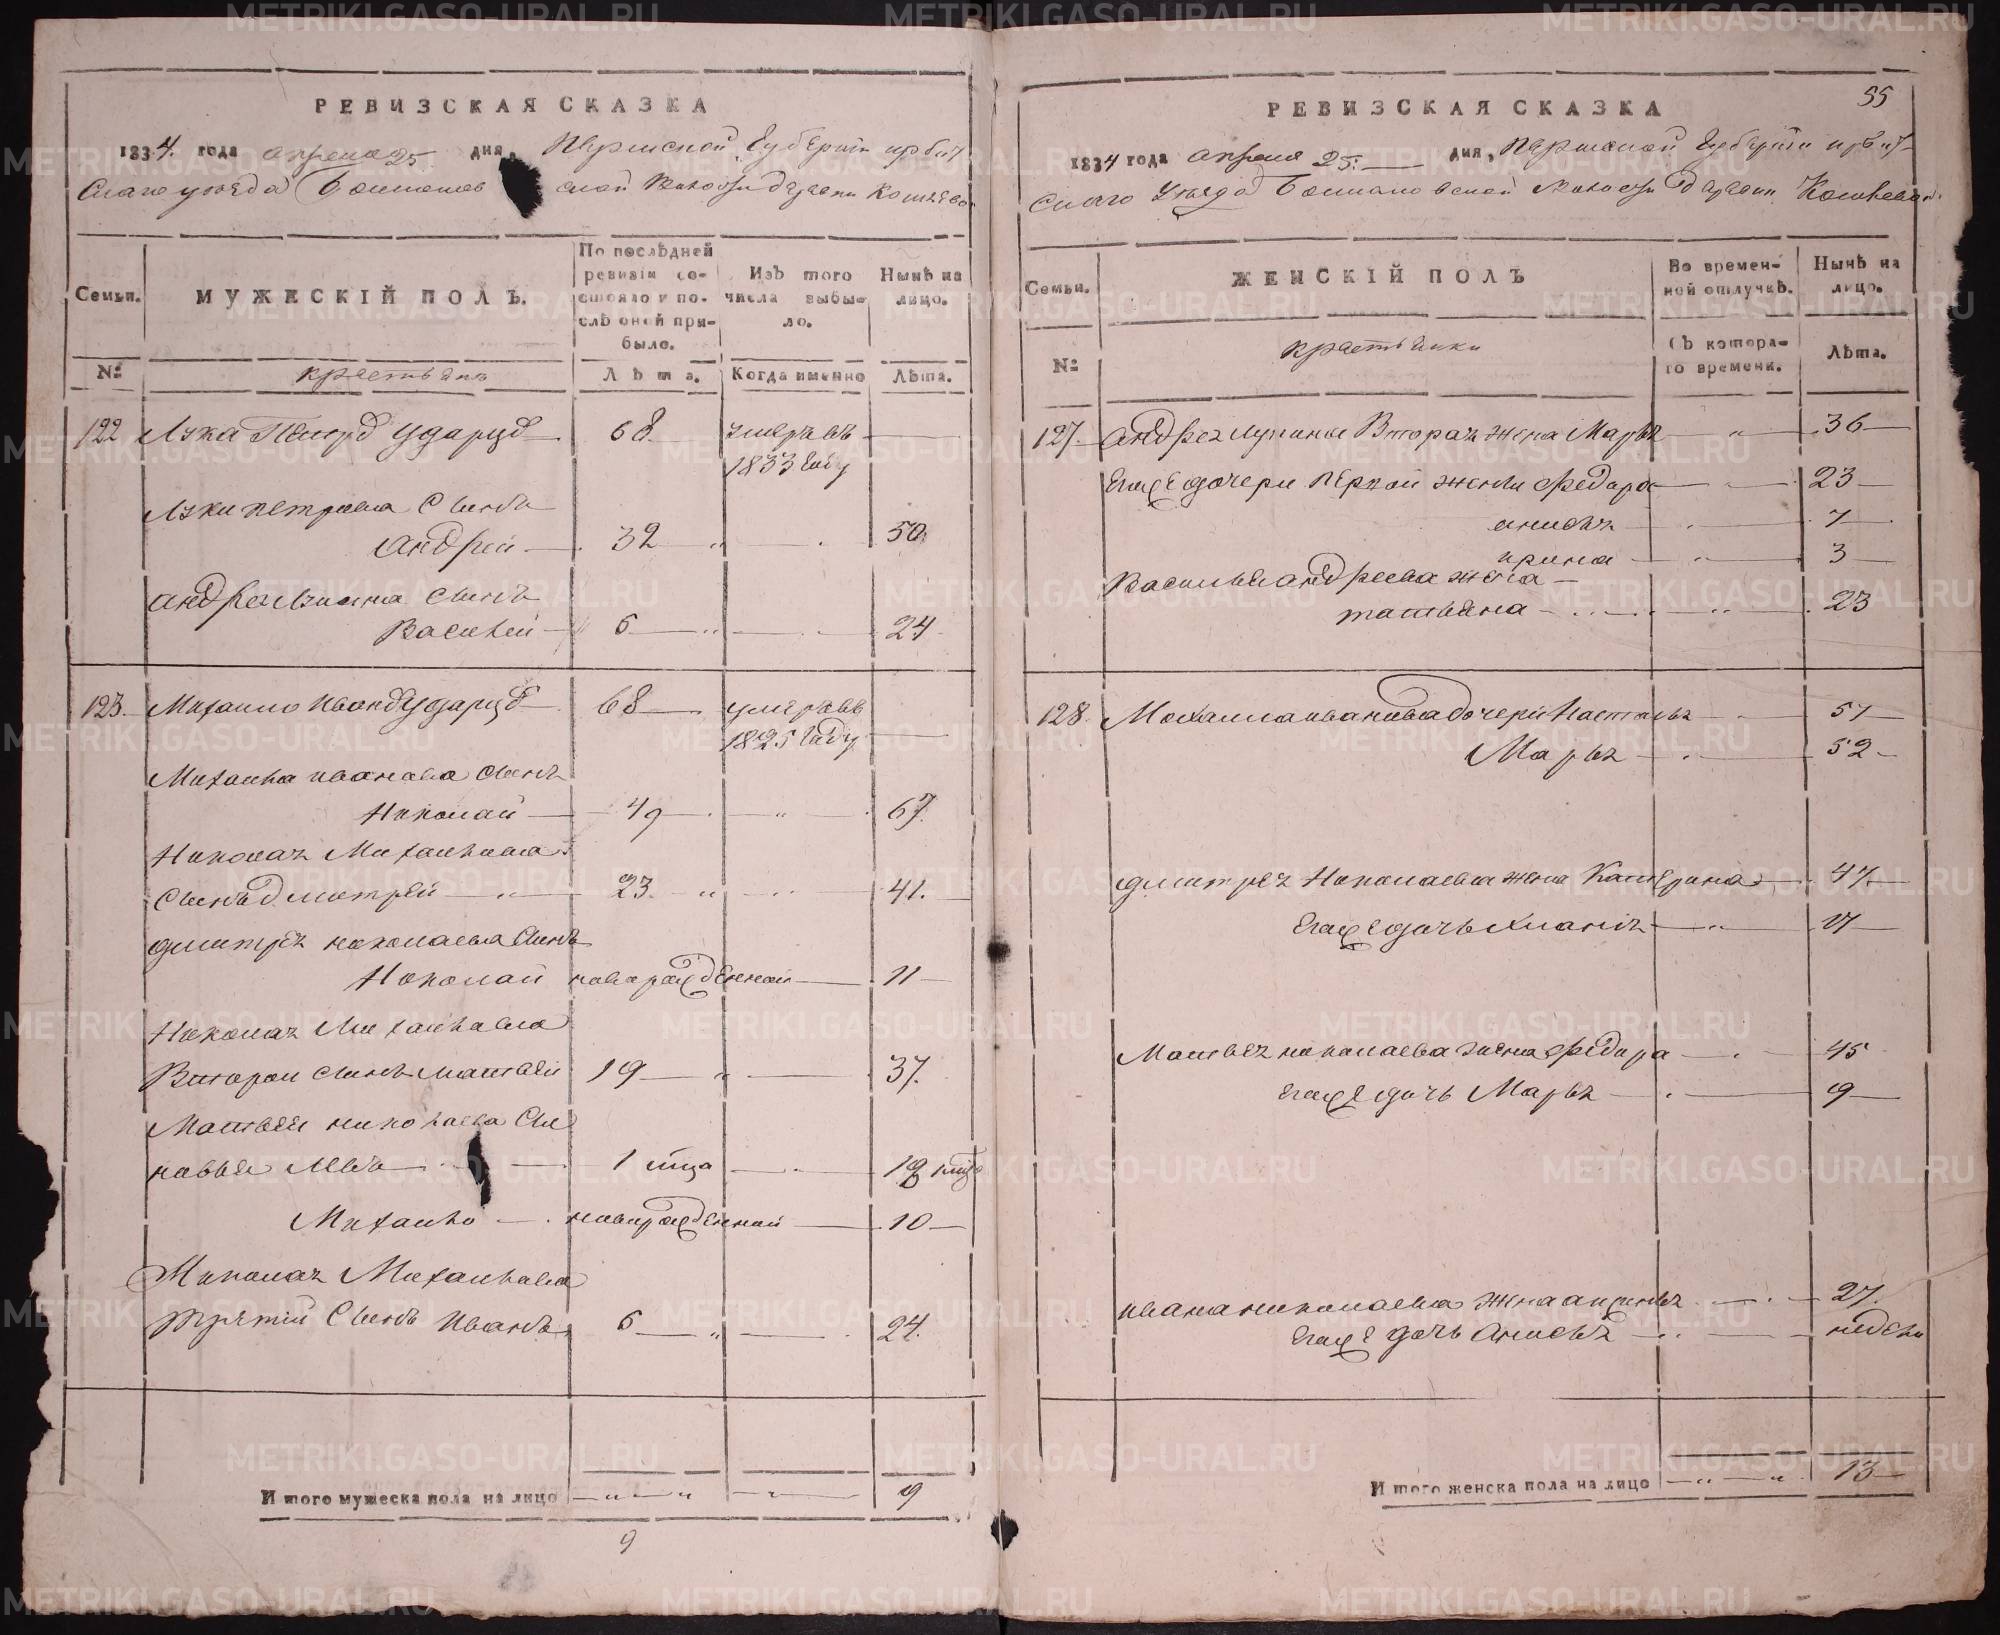 РЕВИЗСКАЯ СКАЗКА
1834. года апреля 25 дня, Пермской Губернiи ирбит
скаго уезда волости деревни
Семьи.
МУЖЕСКІЙ ПОЛЪ.
По послѣдней ревизіи состояло и послѣ оной прибыло.
Изъ того числа выбыло.
Нынѣ на лицо.
№
крестьянъ
Лѣта.
Когда именно
Лѣта.
122 Лука Петров Ударцов 68 умеръ въ
1833 году
Луки петрова Сынъ
андрей 32 50
андрея лукина Сынъ
Василей 6 24
123 Михаило Иванов Ударцов 68 умеръ въ
1825 году
Михаила иванова Сынъ
Николай 49 67
Николая Михаилова
Сынъ дмитрей 23 41
дмитрея николаева Сынъ
Николай новорожденной 11
Николая Михаилова
Второй Сынъ матвей 19 37
Матвея николаева Сы
новья Левъ 1 19
Михаило новорожденной 10
Николая Михаилова
третiй Сынъ Иванъ 6 24
И того мужеска пола на лицо 9
9
РЕВИЗСКАЯ СКАЗКА
55
1834 года апреля 25 дня, Пермской Губернiи ирбит
скаго Уезда волости деревни
Семьи.
ЖЕНСКІЙ ПОЛЪ
Во временной отлучкѣ.
Нынѣ на лицо.
№
крестьянки
Съ котораго времени.
Лѣта.
127. андрея лукина Вторая жена Марья 36
Его же дочери первой жены федора 23
анисья 7
ирина 3
Василья андреева жена
татьяна 23
128 Михаила иванова дочери Настасья 57
Марья 52
дмитрея Николаева жена Катерина 47
Его же дочь 17
Матвея николаева жена федора 45
Его же дочь Марья 9
ивана николаева жена аксинья 27
Его же дочь Анисья недели
И того женска пола на лицо 13
METRIKI.GASO-URAL.RU